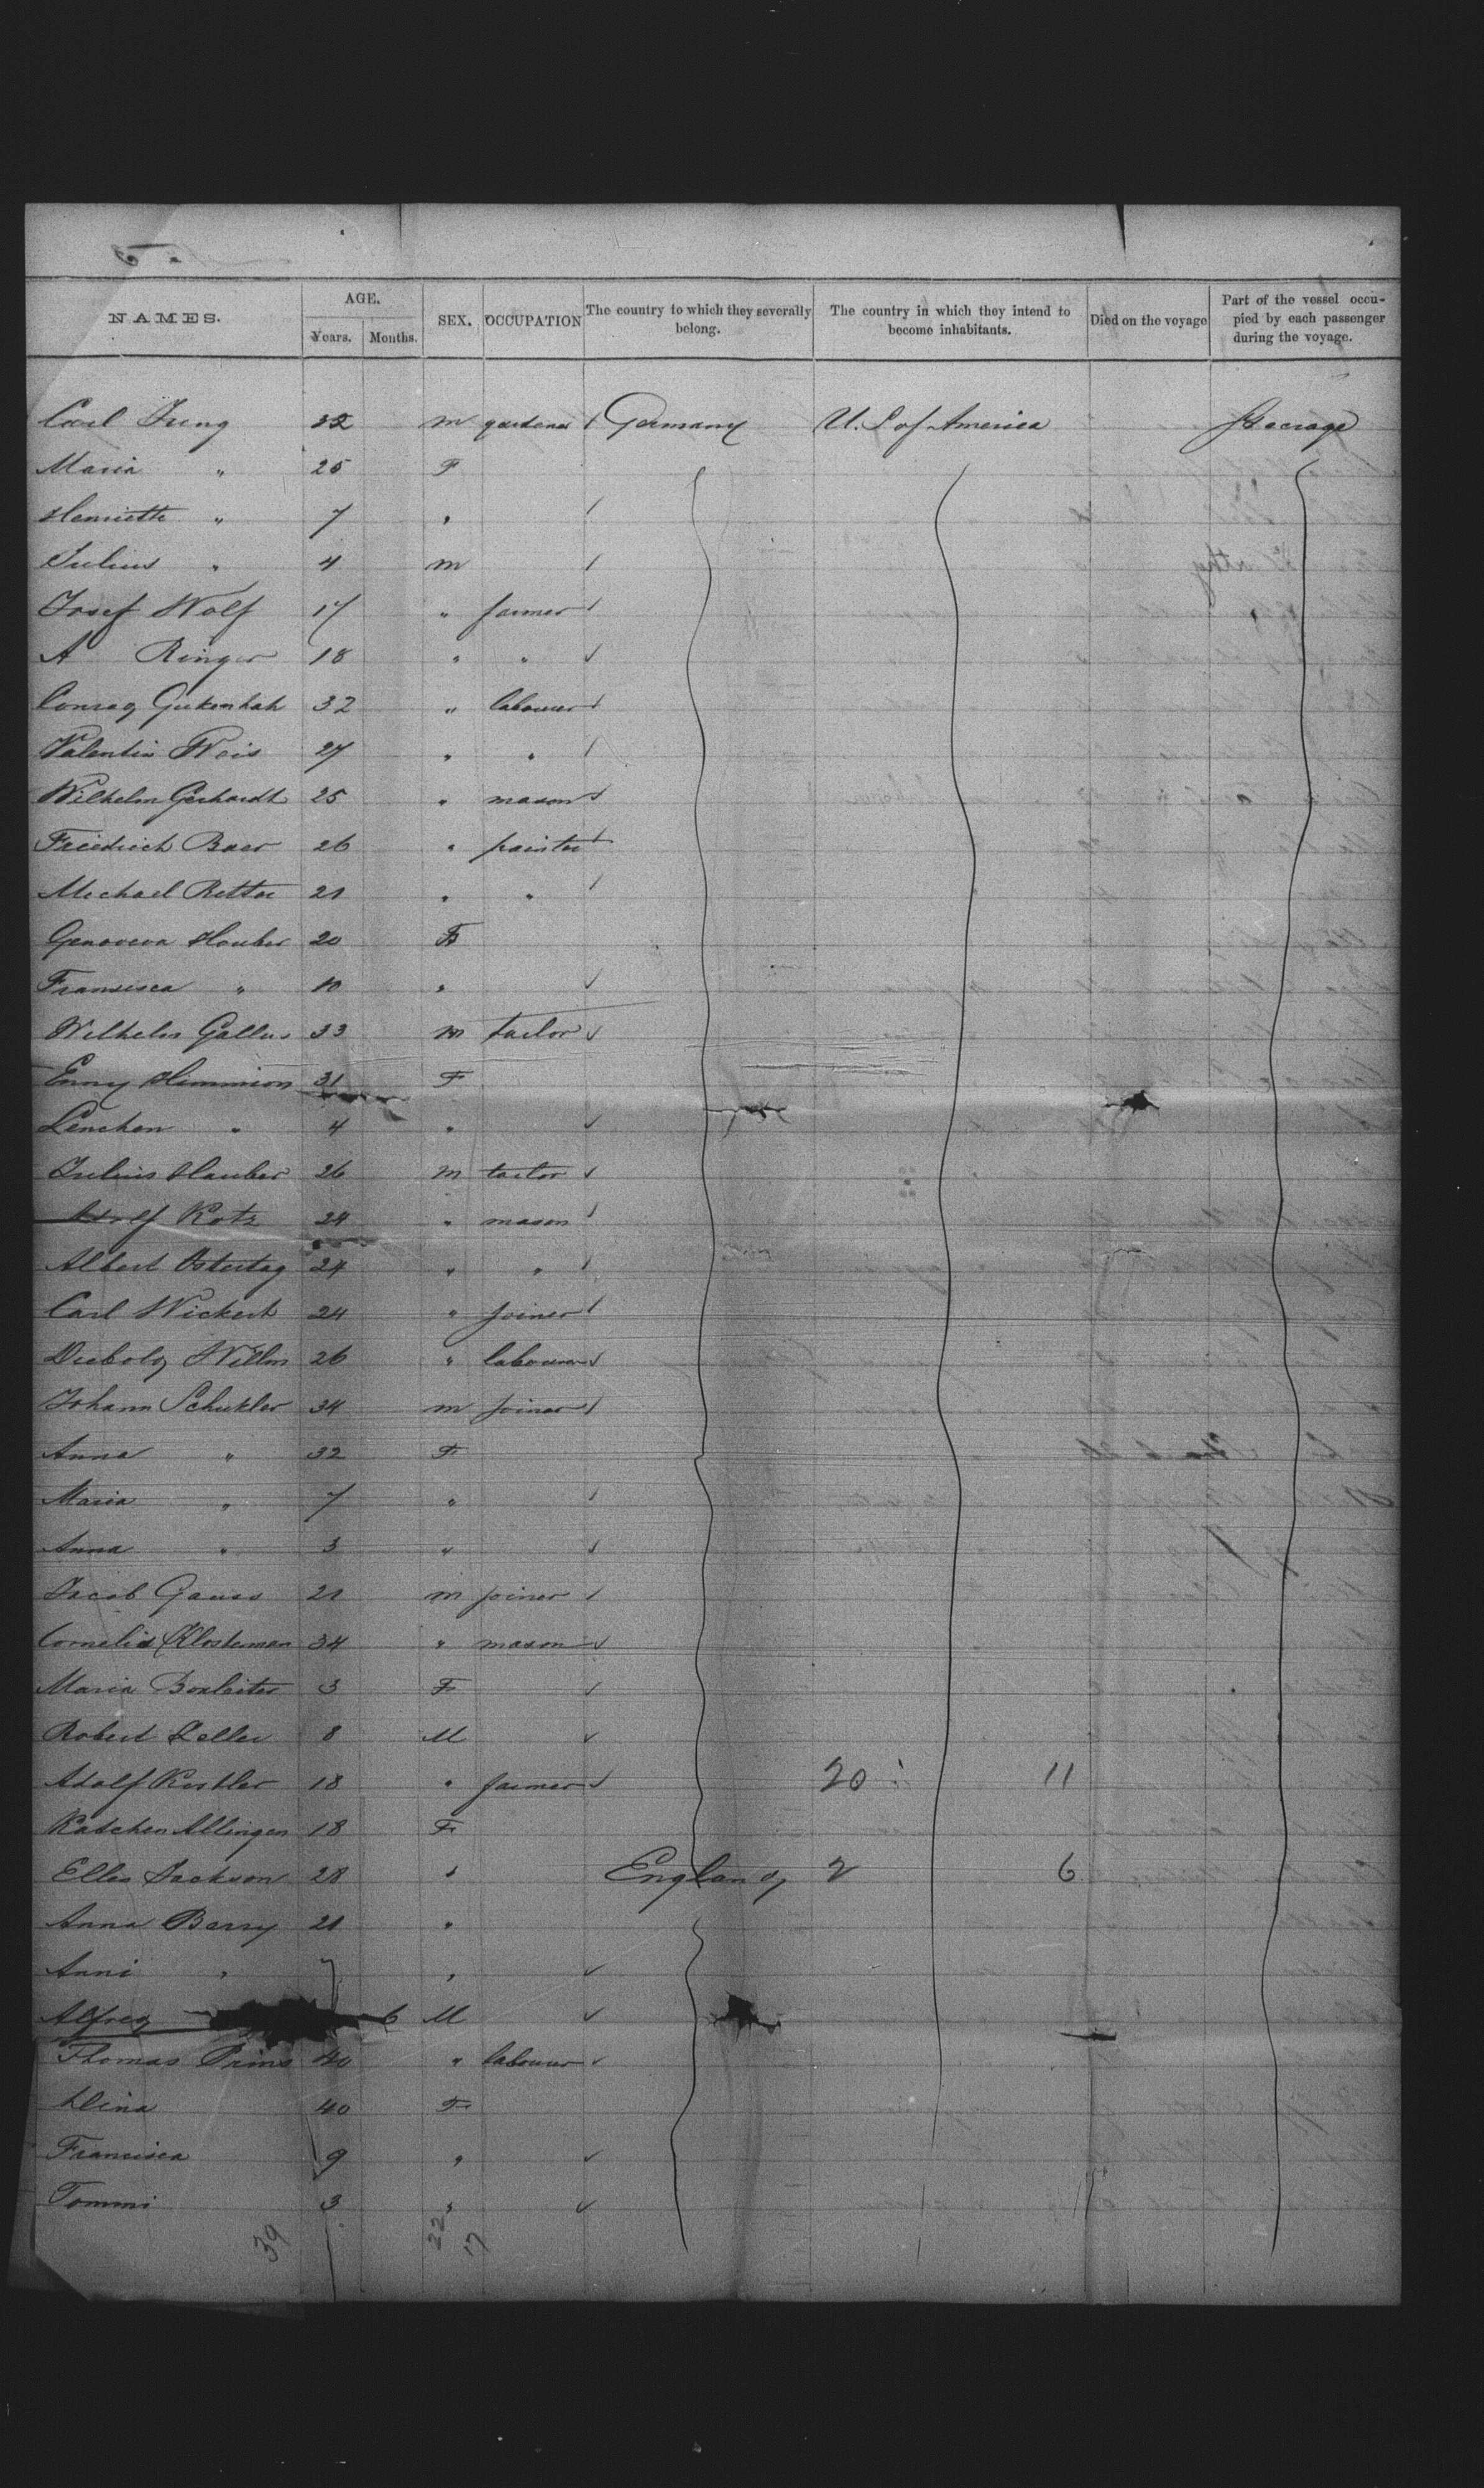 NAMES. AGE. Years. Months. SEX. OCCUPATION The country to which they severally belong. The country in which they intend to become inhabitants. Died on the voyage Part of the vessel occupied by each passenger during the voyage.
Carl Jung 32 m gardener Germany U. S of America Steerage
Maria " 25 F
Henriette " 7 "
Julius " 4 m
Josef Wolf 17 " farmer
A Ringer 18 " "
Conrad 32 " labourer
Valentin Weis 27 " "
Wilhelm Gerhardt 25 " mason
Friedrich Baer 26 " painter
Michael Retter 21 " "
Genoveva Hauber 20 F
Fransisca " 10 "
Wilhelm Gallus 33 m tailor
Enny Himmion 31 F
Lenchen " 4 "
Julius Hauber 26 m tailor
Adolf Kotz 24 " mason
Albert Ostertag 24 " "
Carl Wickert 24 " joiner
Diebold Willm 26 " labourer
Johann Schukler 34 m joiner
Anna " 32 F
Maria " 7 "
Anna " 3 "
Jacob Gauss 21 m joiner
Cornelis Klosterman 34 " mason
Maria 3 F
Robert Zeller 8 M
Adolf 18 " farmer 20 11
Katchen Allinger 18 F
Ellen Jackson 28 " England 2 6
Anna Berry 21 "
Anni " 7 "
Alfred 6 M
Thomas Prins 40 " labourer
Alina 40 F
Francisca 9 "
Tommi 3 "
39 22 17